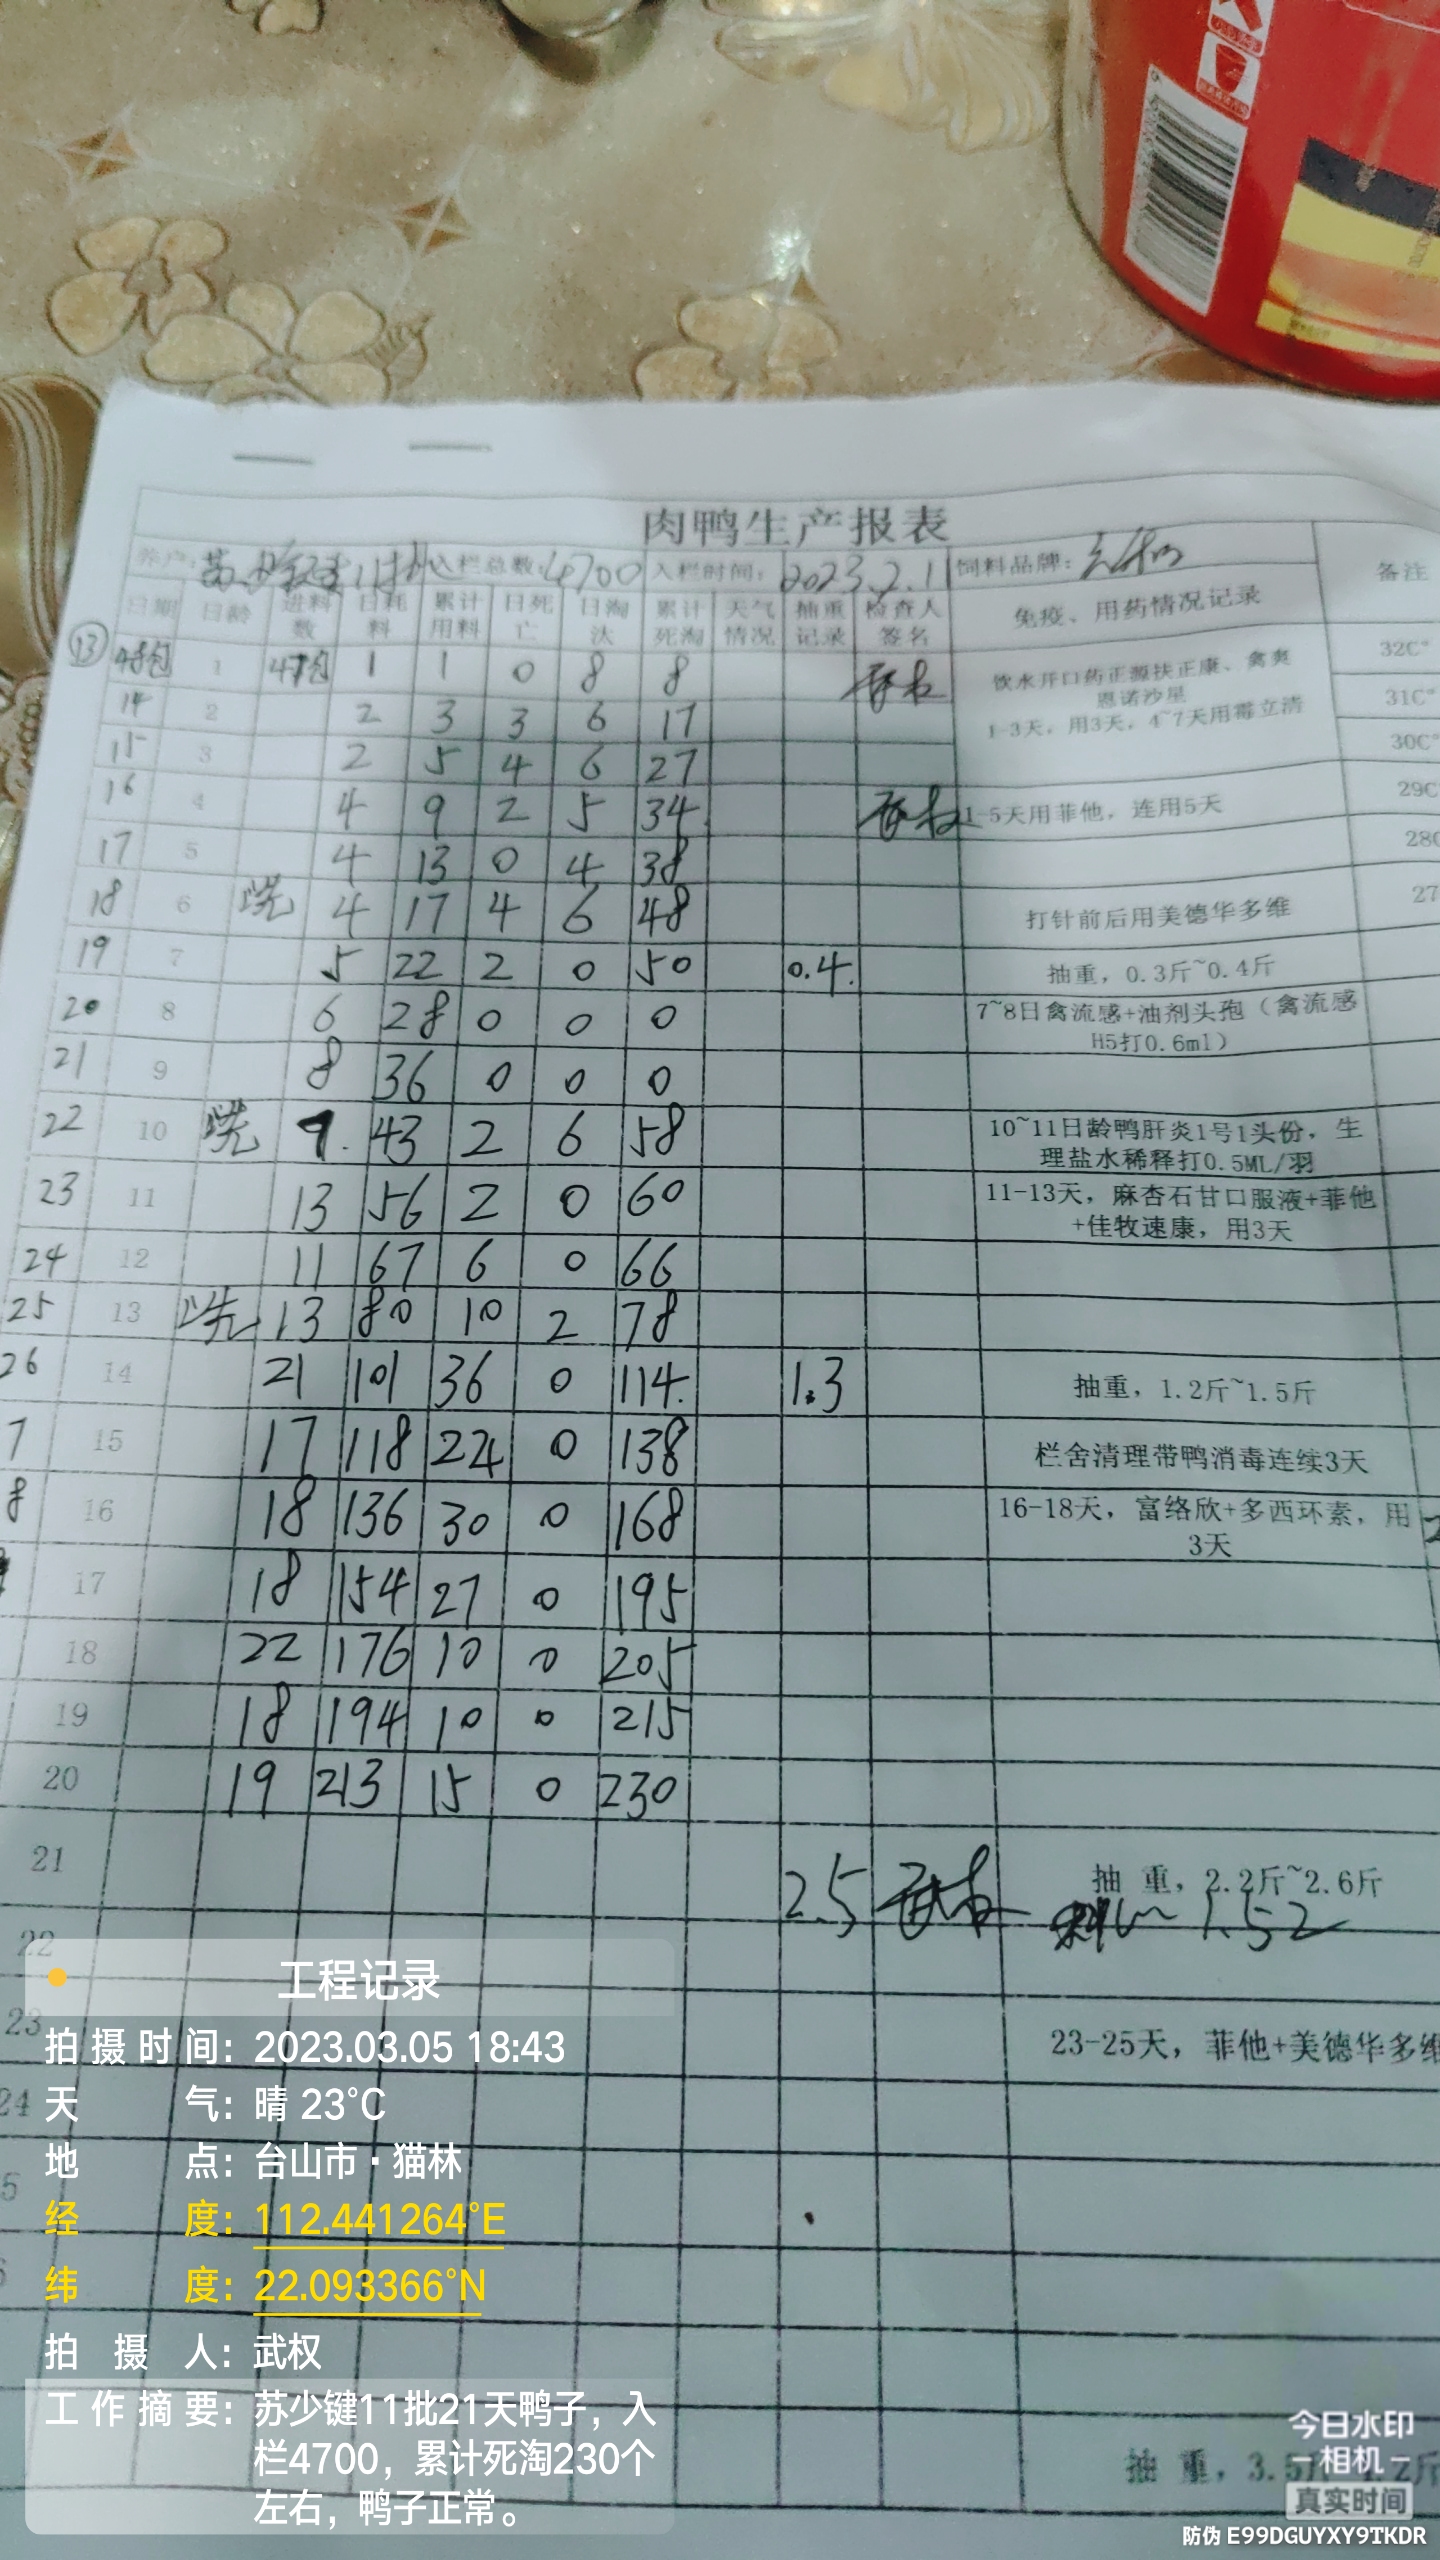 肉鸭生产报表
养户: 苏少键11批 入栏总数: 4700 入栏时间: 2023.2.11 饲料品牌:
备注
日期 日龄 进料数 日耗料 累计用料 日死亡 日淘汰 累计死淘 天气情况 抽重记录 检查人签名 免疫、用药情况记录
⑬ 48包 1 47包 1 1 0 8 8 武权 饮水开口药正源扶正康、禽爽 32C°
恩诺沙星
14 2 2 3 3 6 17 1-3天，用3天，4~7天用霉立清 31C°
15 3 2 5 4 6 27 30C°
16 4 4 9 2 5 34 武权 1-5天用菲他，连用5天 29C
17 5 4 13 0 4 38 28C
18 6 洗 4 17 4 6 48 打针前后用美德华多维 27
19 7 5 22 2 0 50 0.4. 抽重，0.3斤~0.4斤
20 8 6 28 0 0 0 7~8日禽流感+油剂头孢（禽流感
H5打0.6ml）
21 9 8 36 0 0 0
22 10 洗 7. 43 2 6 58 10~11日龄鸭肝炎1号1头份，生
理盐水稀释打0.5ML/羽
23 11 13 56 2 0 60 11-13天，麻杏石甘口服液+菲他
+佳牧速康，用3天
24 12 11 67 6 0 66
25 13 洗 13 80 10 2 78
26 14 21 101 36 0 114. 1.3 抽重，1.2斤~1.5斤
7 15 17 118 24 0 138 栏舍清理带鸭消毒连续3天
8 16 18 136 30 0 168 16-18天，富络欣+多西环素，用
3天
17 18 154 27 0 195
18 22 176 10 0 205
19 18 194 10 0 215
20 19 213 15 0 230
21 2.5 武权 抽 重，2.2斤~2.6斤
料比~ 1.52
22
23 23-25天，菲他+美德华多维
24
5
抽 重，3.5斤
工程记录
拍摄时间: 2023.03.05 18:43
天气: 晴 23°C
地点: 台山市·猫林
经度: 112.441264°E
纬度: 22.093366°N
拍摄人: 武权
工作摘要: 苏少键11批21天鸭子，入
栏4700，累计死淘230个
左右，鸭子正常。
今日水印
相机
真实时间
防伪 E99DGUYXY9TKDR